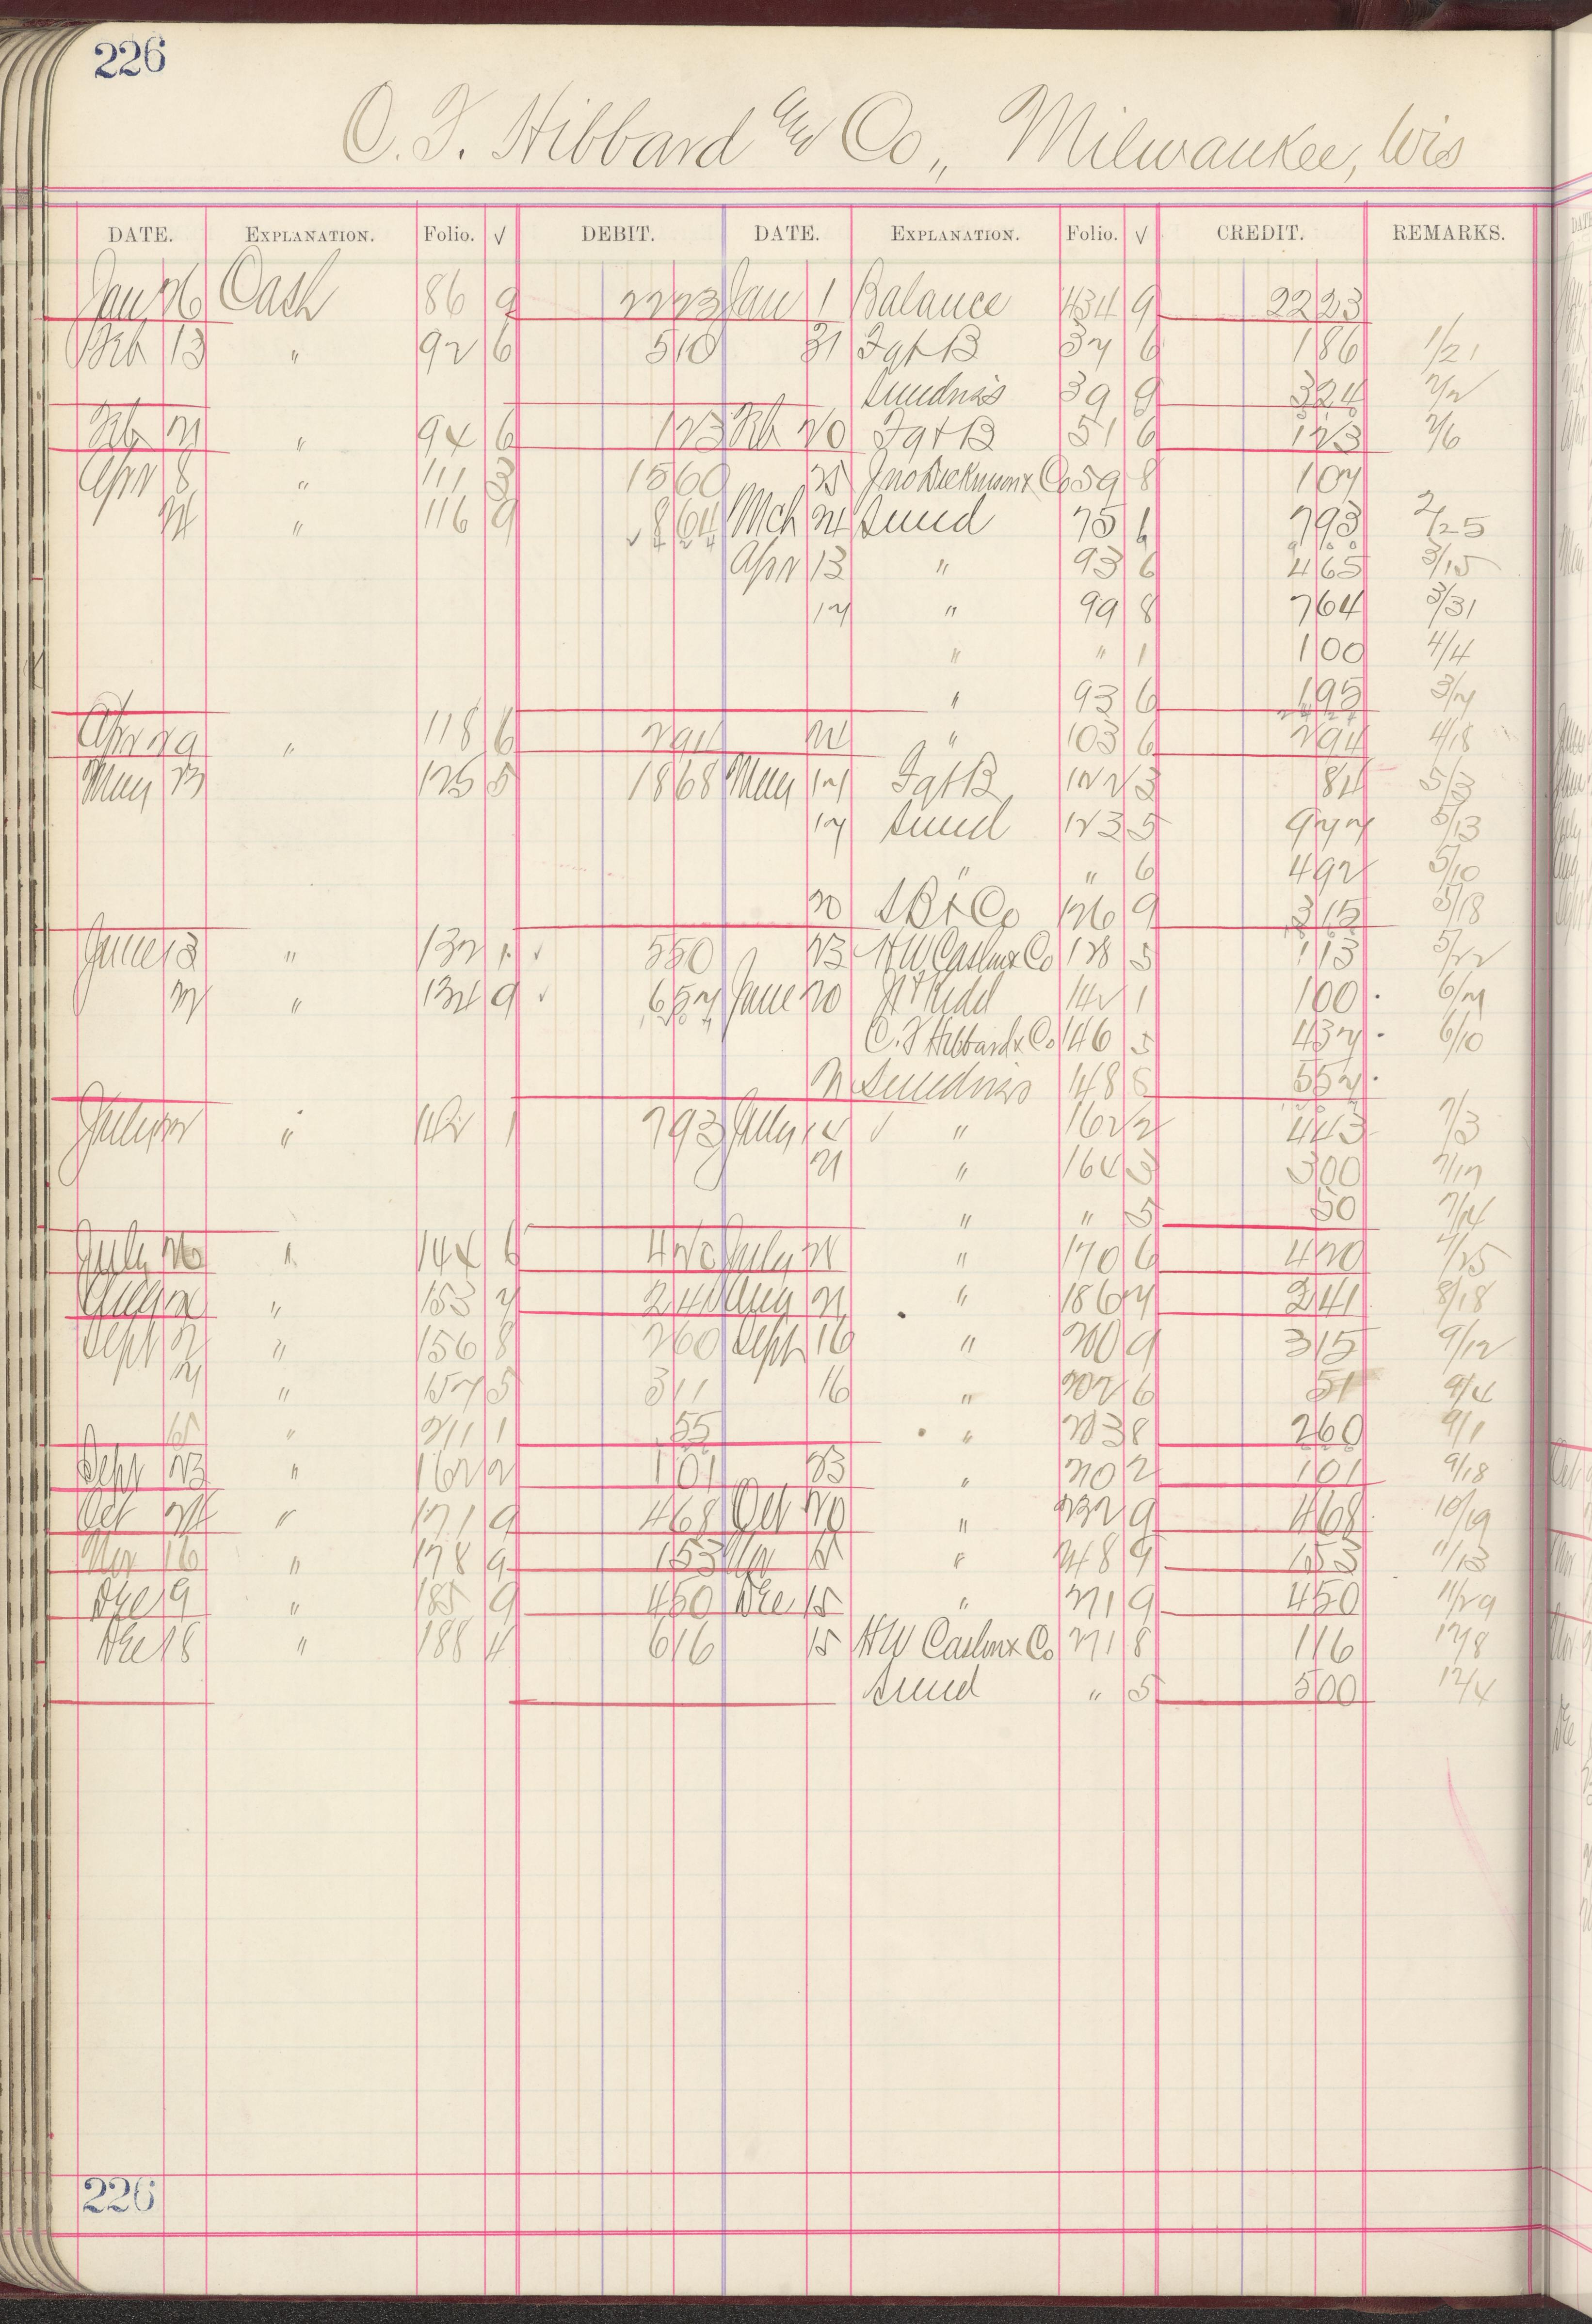 226
O. F. Hibbard & Co., Milwaukee, Wis
DATE. EXPLANATION. Folio. √ DEBIT. DATE. EXPLANATION. Folio. √ CREDIT. REMARKS.
Jan 26 Cash 86 9 2223 Jan 1 Balance 434 9 2223
Feb 13 " 92 6 510 31 Fgt B 37 6 186 1/21
Sundries 39 9 324 2/2
Feb 21 " 94 6 123 Feb 20 Fgt B 51 6 123 2/6
Apr 8 " 111 3 1560 25 Jno Dickinson & Co 59 8 107
24 " 116 9 864 Mch 24 Sund 75 6 793 2/25
Apr 13 " 93 6 465 3/15
17 " 99 8 764 3/31
" " 1 100 4/4
" 93 6 195 3/7
Apr 29 " 118 6 294 24 " 103 6 294 4/18
May 23 125 5 1868 May 17 Fgt B 122 3 84 5/3
17 Sund 123 5 977 5/13
" " 6 492 5/10
20 S B & Co 126 9 315 5/18
June 13 " 132 1 550 23 H W Caslon & Co 138 5 113 5/22
27 " 134 9 657 June 20 142 1 100 6/21
C. F Hibbard & Co 146 5 437 6/10
27 Sundries 148 8 557
July " 1 793 July 14 " 162 2 443 7/3
21 " 164 3 300 7/17
" " 5 50 7/14
July 26 " 144 6 420 July 28 " 170 6 420 7/25
" 153 7 241 Aug 21 " 186 7 241 8/18
Sept 2 " 156 8 260 Sept 16 " 200 9 315 9/12
21 " 157 5 311 16 " 202 6 51 9/4
15 " 211 1 55 " 203 8 260 9/1
Sept 23 " 162 2 101 23 " 210 2 101 9/18
Oct 24 " 171 9 468 Oct 20 " 232 9 468 10/19
Nov 16 " 178 9 153 Nov 15 " 248 9 153 11/13
Dec 19 " 185 9 450 Dec 15 " 271 9 450 11/29
Dec 18 " 188 4 616 15 H W Caslon & Co 271 8 116 12/8
Sund " 5 500 12/4
226